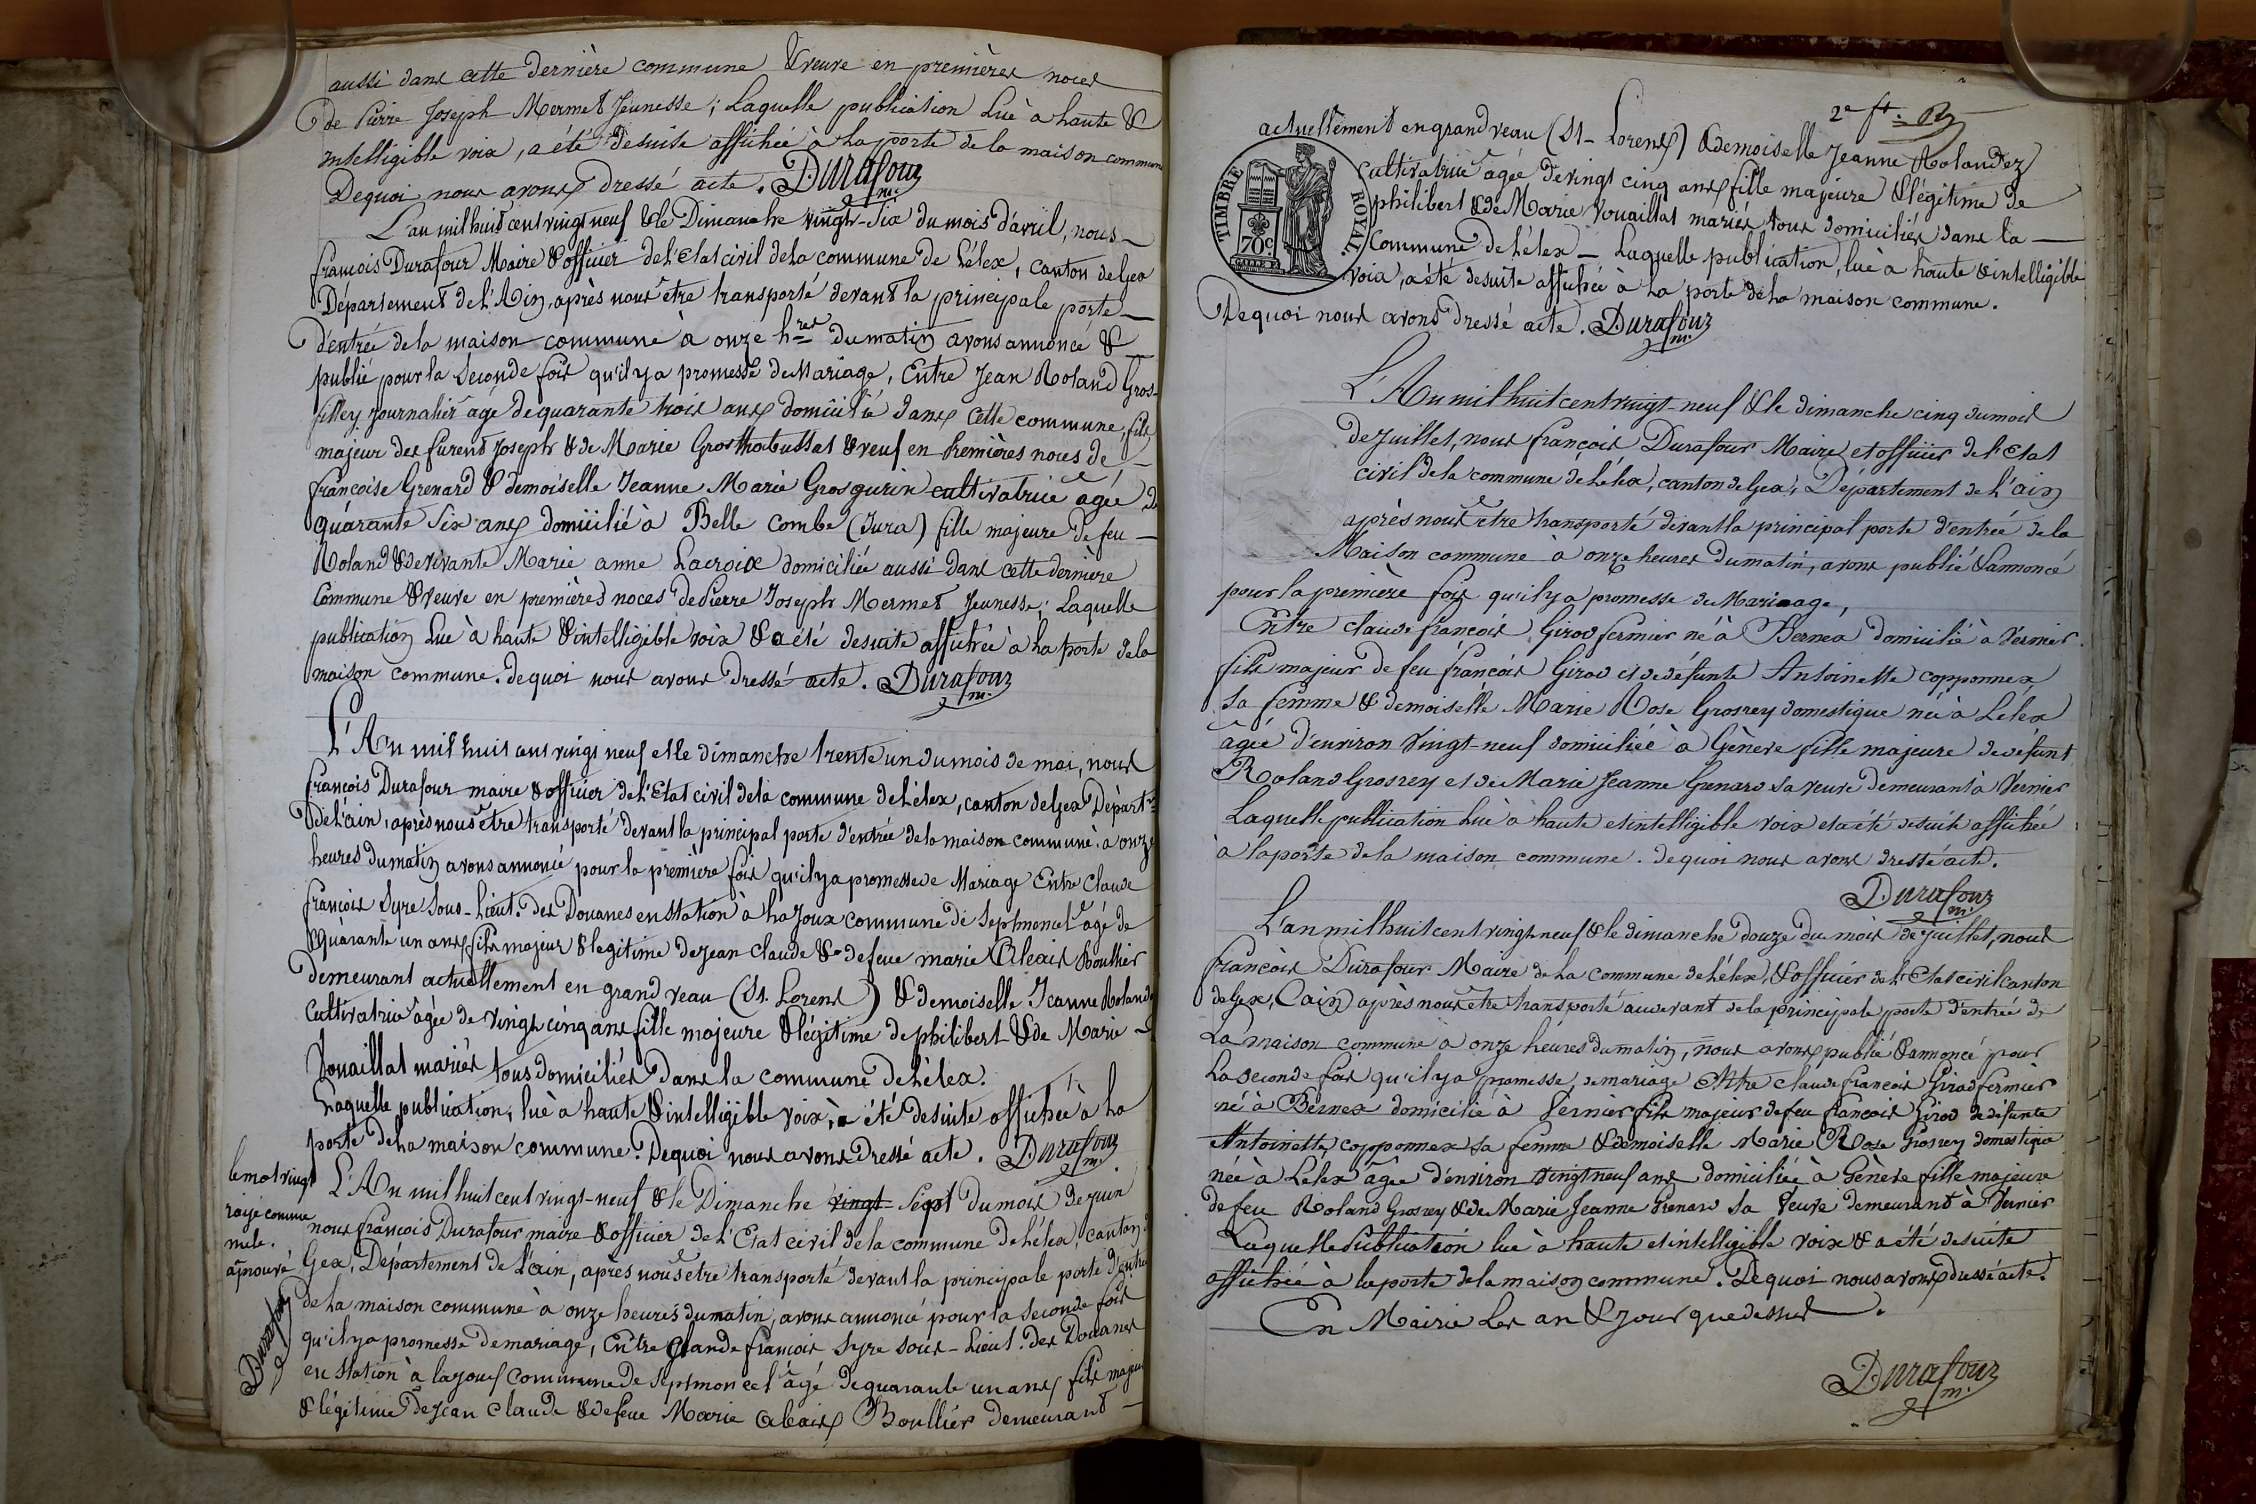 aussi dans cette dernière commune & veuve en premières noces
de Pierre Joseph Mermet Jeunesse ; Laquelle publication Lue à haute &
intelligible voix, a été desuite affichée à la porte de la maison commune
Dequoi nous avons dressé acte. Durafour m.
L'an mil huit cent vingt neuf & le Dimanche vingt-six du mois d'avril, nous
françois Durafour Maire & officier de l'Etat civil de la commune de Lélex, canton de Gex
Département de l'Ain, après nous être transporté devant la principale porte
d'entrée de la maison commune à onze hres du matin avons annoncé &
publié pour la seconde fois qu'il y a promesse de Mariage, Entre Jean Roland Gros-
filley journalier agé de quarante trois ans domicilié dans cette commune, fils
majeur des furent Joseph & de Marie Gros & veuf en Premières noces de
françoise Grenard & demoiselle Jeanne Marie Grosgurin cultivatrice agée de
quarante six ans domicilié à Belle combe (Jura) fille majeure de feu
Roland & de vivante Marie anne Lacroix domiciliée aussi dans cette dernière
Commune & veuve en premières noces de Pierre Joseph Mermet Jeunesse ; Laquelle
publication Lue à haute & intelligible voix & a été desuite affichée à la porte de la
maison commune. dequoi nous avons dressé acte. Durafour m.
L'An mil huit cent vingt neuf et le dimanche trente un du mois de mai, nous
françois Durafour maire & officier de l'Etat civil de la commune de Lélex, canton de Gex Départ.
de l'ain, après nous être transporté devant la principal porte d'entrée de la maison commune à onze
heures du matin avons annoncé pour la première fois qu'il y a promesse de Mariage Entre Claude
françois Syre Sous-Lieut. des Douanes en station à la Joux commune de Septmoncel agé de
quarante un ans fils majeur & legitime de Jean Claude & de feue marie Alexis Boullier
demeurant actuellement en grand veau (St. Lorens) & demoiselle Jeanne Rolandez
Cultivatrice agée de vingt cinq ans fille majeure & légitime de philibert & de Marie
Vouaillat mariés tous domiciliés dans la commune de Lélex.
Laquelle publication, lue à haute & intelligible voix, a été desuite affichée à la
porte de la maison commune. Dequoi nous avons Dressé acte. Durafour m.
le mot vingt
rayé comme
nule.
approuvé
Durafour
L'An mil huit cent vingt-neuf & le Dimanche vingt sept du mois de juin
nous françois Durafour maire & officier de l'Etat civil de la commune de Lélex, canton de
Gex, Département de l'ain, après nous être transporté devant la principale porte d'entrée
de la maison commune à onze heures du matin, avons annoncé pour la seconde fois
qu'il y a promesse de mariage, Entre Claude françois Syre sous-Lieut. des Douanes
en station à lajoux Commune de septmoncel âgé de quarante un ans fils majeur
& légitime de Jean Claude & de feue Marie Alexis Boullier demeurant
2e ft.
actuellement en grand veau (St-Lorens) & demoiselle Jeanne Rolandez
TIMBRE ROYAL 70c
Cultivatrice agée de vingt cinq ans fille majeure & légitime de
philibert & de Marie Vouaillat mariés tous domiciliés dans la
Commune de Lélex - Laquelle publication, lue à haute & intelligible
voix, a été desuite affichée à la porte de la maison commune.
De quoi nous avons dressé acte. Durafour m.
L'An mil huit cent vingt-neuf & le dimanche cinq du mois
de Juillet, nous françois Durafour Maire et officier de l'Etat
civil de la commune de Lélex, canton de Gex, Département de l'ain
après nous être transporté devant la principal porte d'entrée de la
Maison commune à onze heures du matin, avons publié & annoncé
pour la première fois qu'il y a promesse de Mariage,
Entre claude françois Girod fermier né à Bernex domicilié à Vernier
fils majeur de feu françois Girod et de défunte Antoinette copponnex
sa femme & demoiselle Marie Rose Grosrey domestique née à Lélex
âgée d'environ vingt-neuf domiciliée à Genève fille majeure de défunt
Roland Grosrey et de Marie Jeanne Grenard sa veuve demeurant à Vernier
Laquelle publication Lue à haute et intelligible voix et a été desuite affichée
à la porte de la maison commune. de quoi nous avons dressé acte.
Durafour m.
L'an mil huit cent vingt neuf & le dimanche douze du mois de juillet, nous
françois Durafour Maire de la commune de Lélex, & officier de l'Etat civil canton
de Gex, (ain) après nous être transporté au devant de la principale porte d'entrée de
La maison commune à onze heures du matin, nous avons publié & annoncé pour
La seconde fois qu'il y a promesse de mariage Entre claude françois Girod fermier
né à Bernex domicilié à Vernier fils majeur de feu françois Girod de défunte
Antoinette copponnex sa femme & demoiselle Marie Rose Grosrey domestique
née à Lélex âgée d'environ vingt neuf ans domiciliée à Genève fille majeure
de feu Roland Grosrey & de Marie Jeanne Grenard sa veuve demeurant à Vernier
Laquelle Publication lue à haute et intelligible voix & a été desuite
affichée à la porte de la maison commune. De quoi nous avons dressé acte.
En Mairie Les an & jour que dessus.
Durafour m.